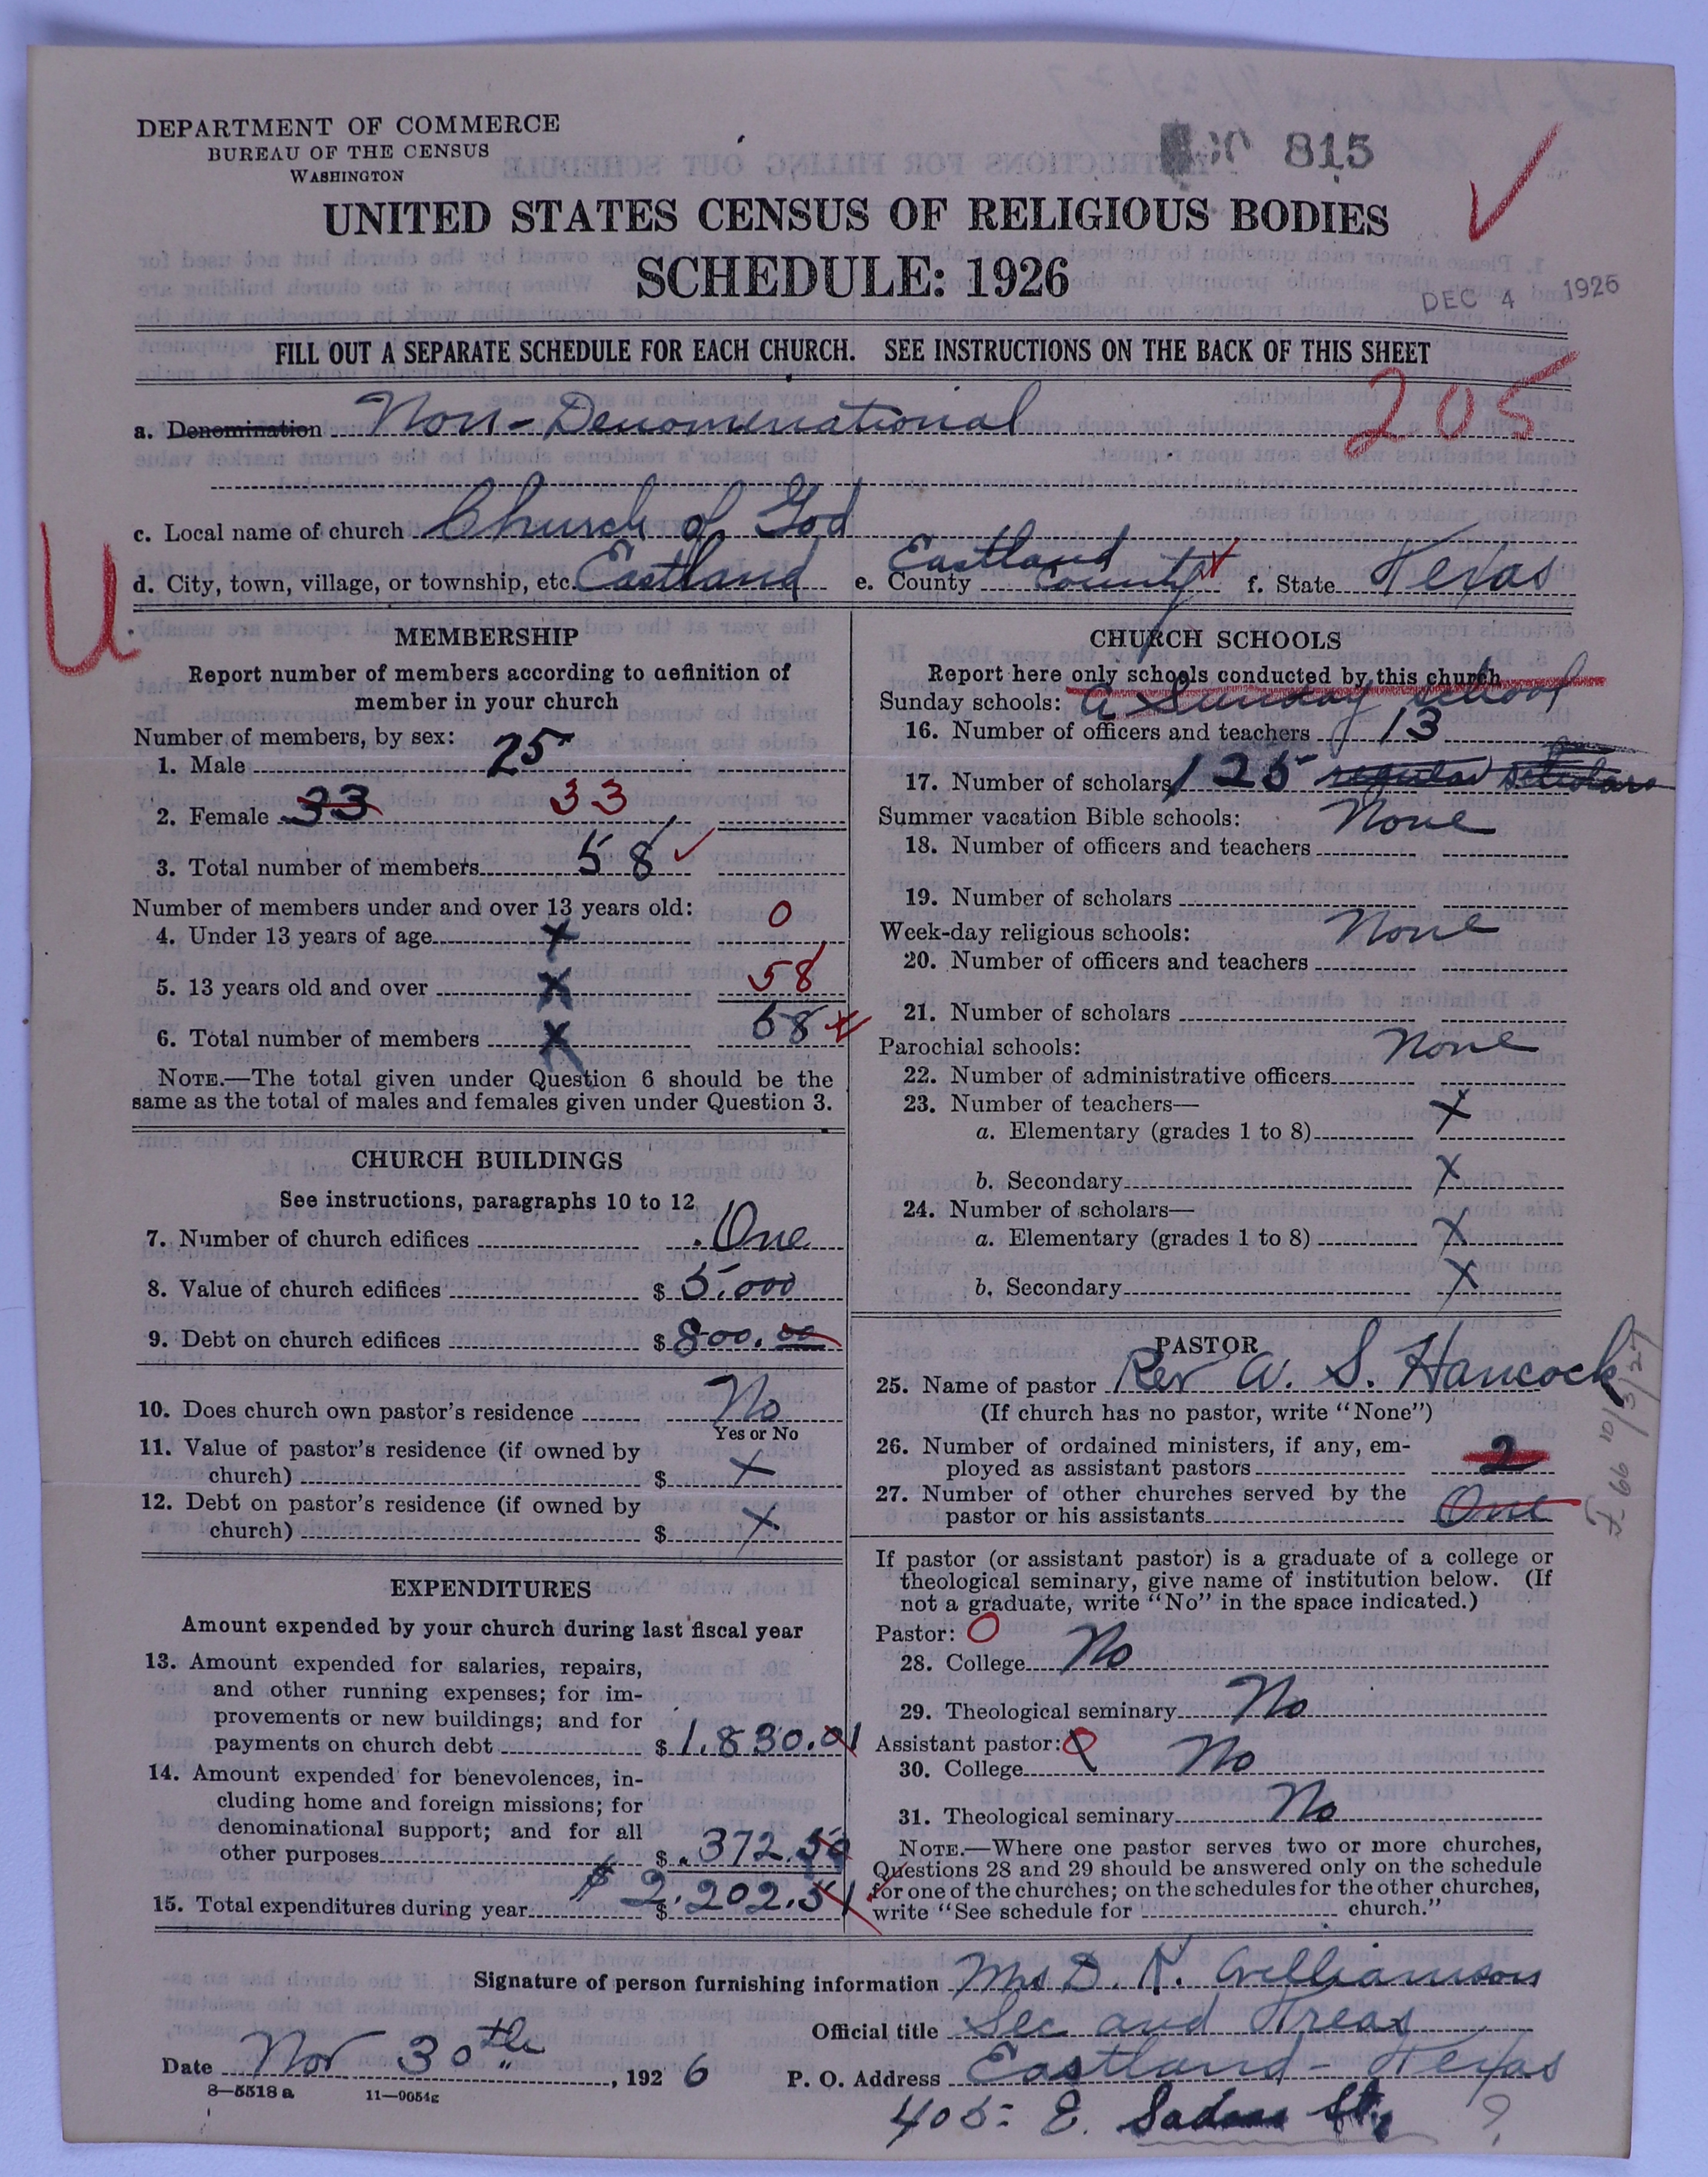 DEPARTMENT OF COMMERCE
BUREAU OF THE CENSUS
WASHINGTON
815
UNITED STATES CENSUS OF RELIGIOUS BODIES
SCHEDULE: 1926
DEC 4 1926
FILL OUT A SEPARATE SCHEDULE FOR EACH CHURCH. SEE INSTRUCTIONS ON THE BACK OF THIS SHEET
205
a. Denomination Non-Denominational
c. Local name of church Church of God
d. City, town, village, or township, etc. Eastland e. County Eastland County f. State Texas
U
MEMBERSHIP
Report number of members according to definition of
member in your church
Number of members, by sex:
1. Male 25
2. Female 33 33
3. Total number of members 58
Number of members under and over 13 years old:
4. Under 13 years of age X 0
5. 13 years old and over X 58
6. Total number of members X 58
NOTE.—The total given under Question 6 should be the
same as the total of males and females given under Question 3.
CHURCH BUILDINGS
See instructions, paragraphs 10 to 12
7. Number of church edifices One
8. Value of church edifices $ 5.000
9. Debt on church edifices $ 800.00
10. Does church own pastor's residence No
Yes or No
11. Value of pastor's residence (if owned by
church) $ X
12. Debt on pastor's residence (if owned by
church) $ X
EXPENDITURES
Amount expended by your church during last fiscal year
13. Amount expended for salaries, repairs,
and other running expenses; for im-
provements or new buildings; and for
payments on church debt $ 1.830.01
14. Amount expended for benevolences, in-
cluding home and foreign missions; for
denominational support; and for all
other purposes $ 372.50
15. Total expenditures during year $ $ 2.202.51
CHURCH SCHOOLS
Report here only schools conducted by this church
Sunday schools: a Sunday school
16. Number of officers and teachers 13
17. Number of scholars 125 regular scholars
Summer vacation Bible schools: None
18. Number of officers and teachers
19. Number of scholars
Week-day religious schools: None
20. Number of officers and teachers
21. Number of scholars
Parochial schools: None
22. Number of administrative officers
23. Number of teachers—
a. Elementary (grades 1 to 8) X
b. Secondary X
24. Number of scholars—
a. Elementary (grades 1 to 8) X
b. Secondary X
PASTOR
25. Name of pastor Rev W. S. Hancock
(If church has no pastor, write "None")
26. Number of ordained ministers, if any, em-
ployed as assistant pastors 2
27. Number of other churches served by the
pastor or his assistants One
If pastor (or assistant pastor) is a graduate of a college or
theological seminary, give name of institution below. (If
not a graduate, write "No" in the space indicated.)
Pastor: O
28. College No
29. Theological seminary No
Assistant pastor: O
30. College No
31. Theological seminary No
NOTE.—Where one pastor serves two or more churches,
Questions 28 and 29 should be answered only on the schedule
for one of the churches; on the schedules for the other churches,
write "See schedule for church."
Signature of person furnishing information Mrs D. K. Williamson
Official title Sec and Treas
Date Nov 30th, 1926 P. O. Address Eastland - Texas
8—5518 a 11—9054g
405 E. St. ?